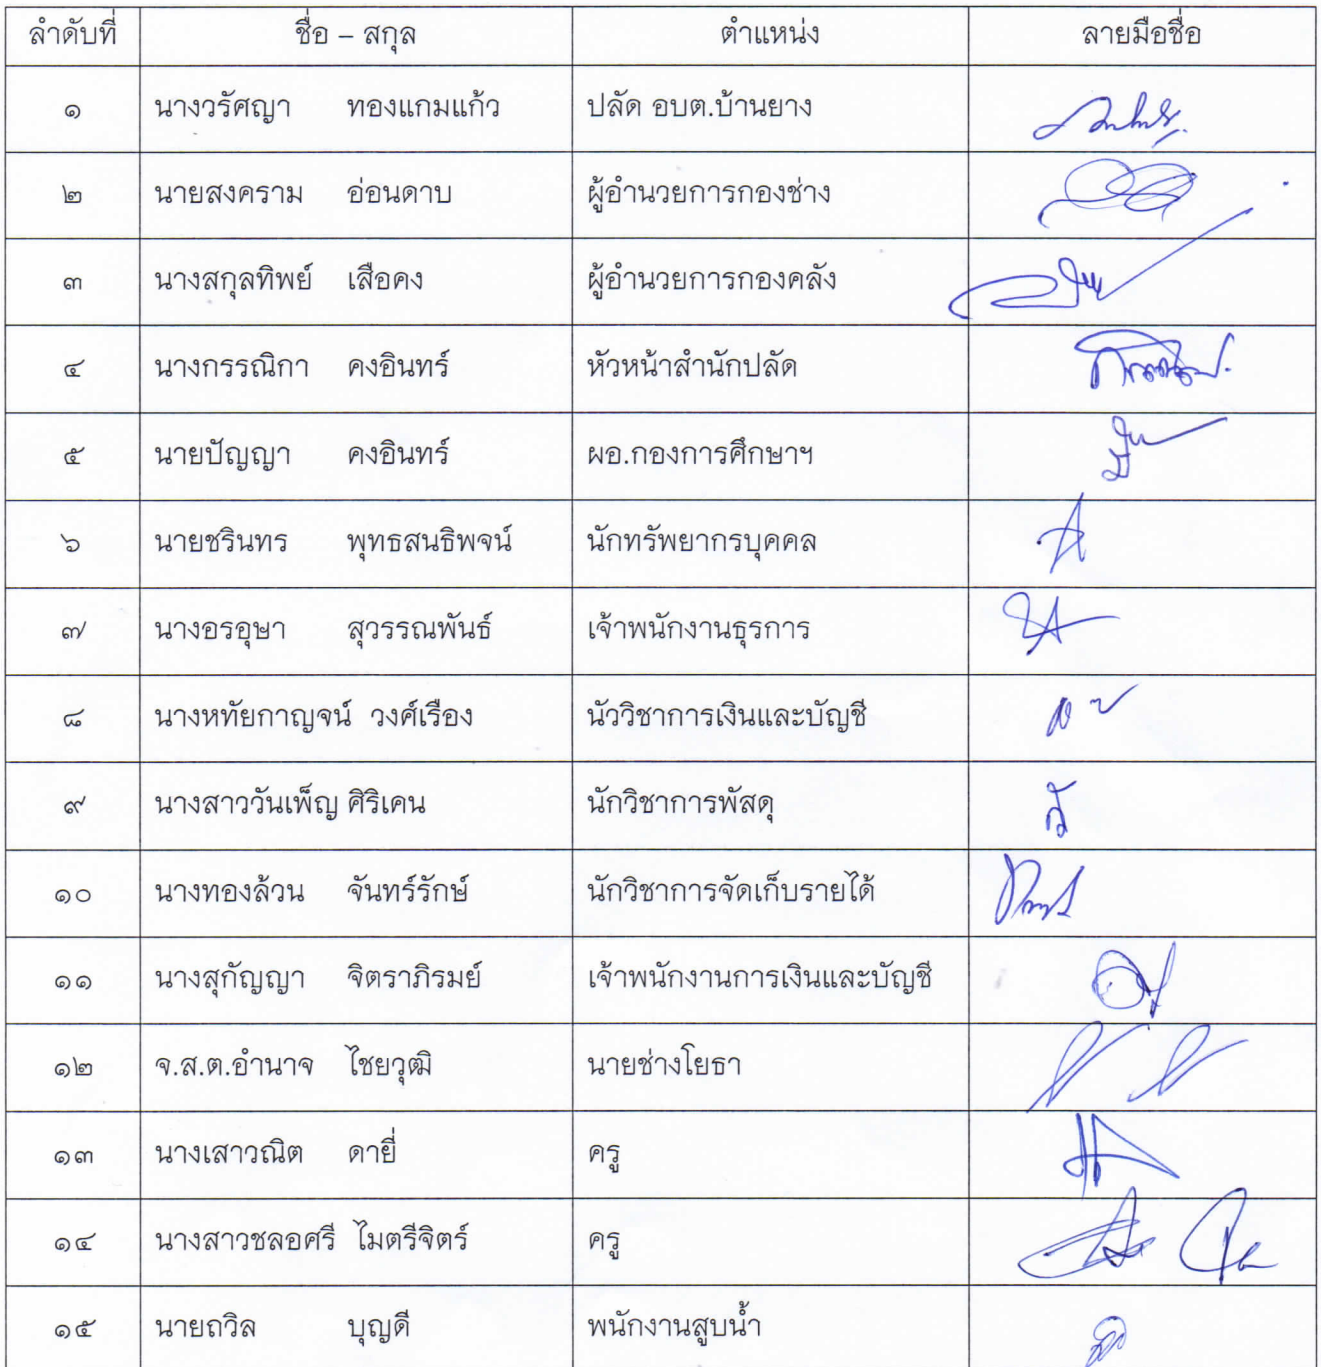 ลำดับที่ ชื่อ – สกุล ตำแหน่ง ลายมือชื่อ
๑ นางวรัศญา ทองแกมแก้ว ปลัด อบต.บ้านยาง
๒ นายสงคราม อ่อนดาบ ผู้อำนวยการกองช่าง
๓ นางสกุลทิพย์ เสือคง ผู้อำนวยการกองคลัง
๔ นางกรรณิกา คงอินทร์ หัวหน้าสำนักปลัด
๕ นายปัญญา คงอินทร์ ผอ.กองการศึกษาฯ
๖ นายชรินทร พุทธสนธิพจน์ นักทรัพยากรบุคคล
๗ นางอรอุษา สุวรรณพันธ์ เจ้าพนักงานธุรการ
๘ นางหทัยกาญจน์ วงศ์เรือง นัววิชาการเงินและบัญชี
๙ นางสาววันเพ็ญ ศิริเคน นักวิชาการพัสดุ
๑๐ นางทองล้วน จันทร์รักษ์ นักวิชาการจัดเก็บรายได้
๑๑ นางสุกัญญา จิตราภิรมย์ เจ้าพนักงานการเงินและบัญชี
๑๒ จ.ส.ต.อำนาจ ไชยวุฒิ นายช่างโยธา
๑๓ นางเสาวณิต ดายี่ ครู
๑๔ นางสาวชลอศรี ไมตรีจิตร์ ครู
๑๕ นายถวิล บุญดี พนักงานสูบน้ำ